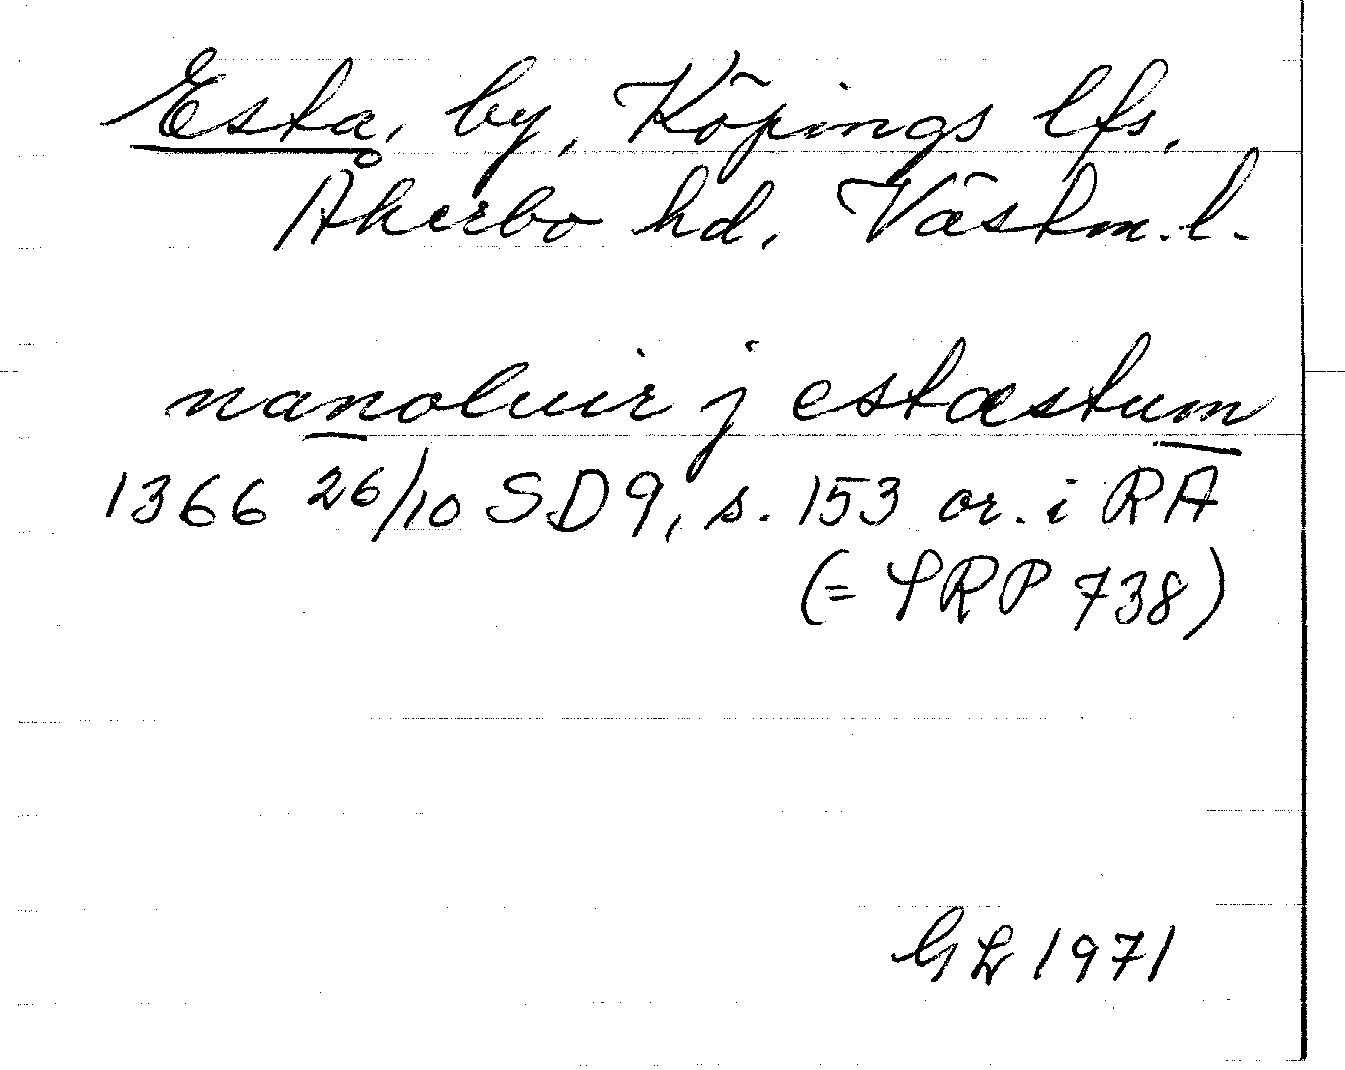 Esta, by, Köpings lfs,
Åkerbo hd, Västm. l.
nanoluir j estæstum
1366 26/10 SD 9, s. 153 or. i RA
(= SRP 738)
GL 1971